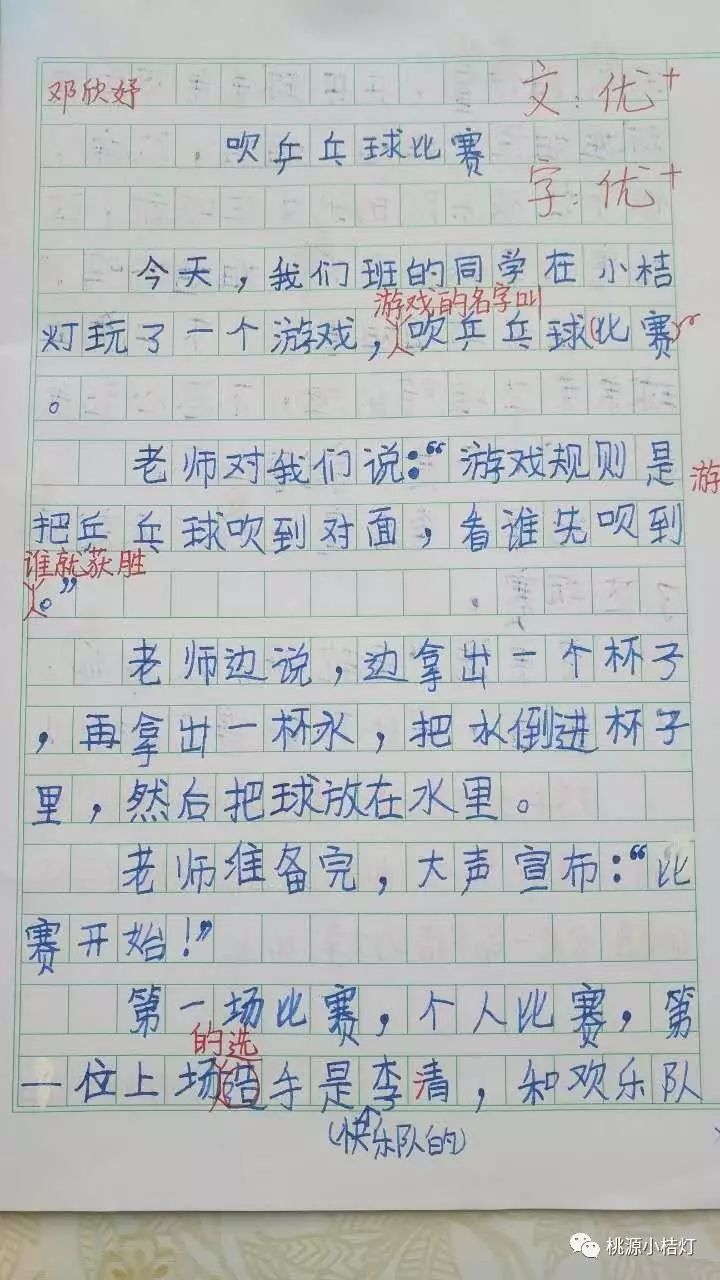 邓欣妤
文:优+
吹乒乓球比赛
字:优+
今天,我们班的同学在小桔
游戏的名字叫
灯玩了一个游戏,吹乒乓球(比赛)
。
老师对我们说:“游戏规则是
游
把乒乓球吹到对面,看谁先吹到
谁就获胜
。”
老师边说,边拿出一个杯子
,再拿出一杯水,把水倒进杯子
里,然后把球放在水里。
老师准备完,大声宣布:“比
赛开始!”
第一场比赛,个人比赛,第
的选
一位上场手是李清,和欢乐队
(快乐队的)
桃源小桔灯